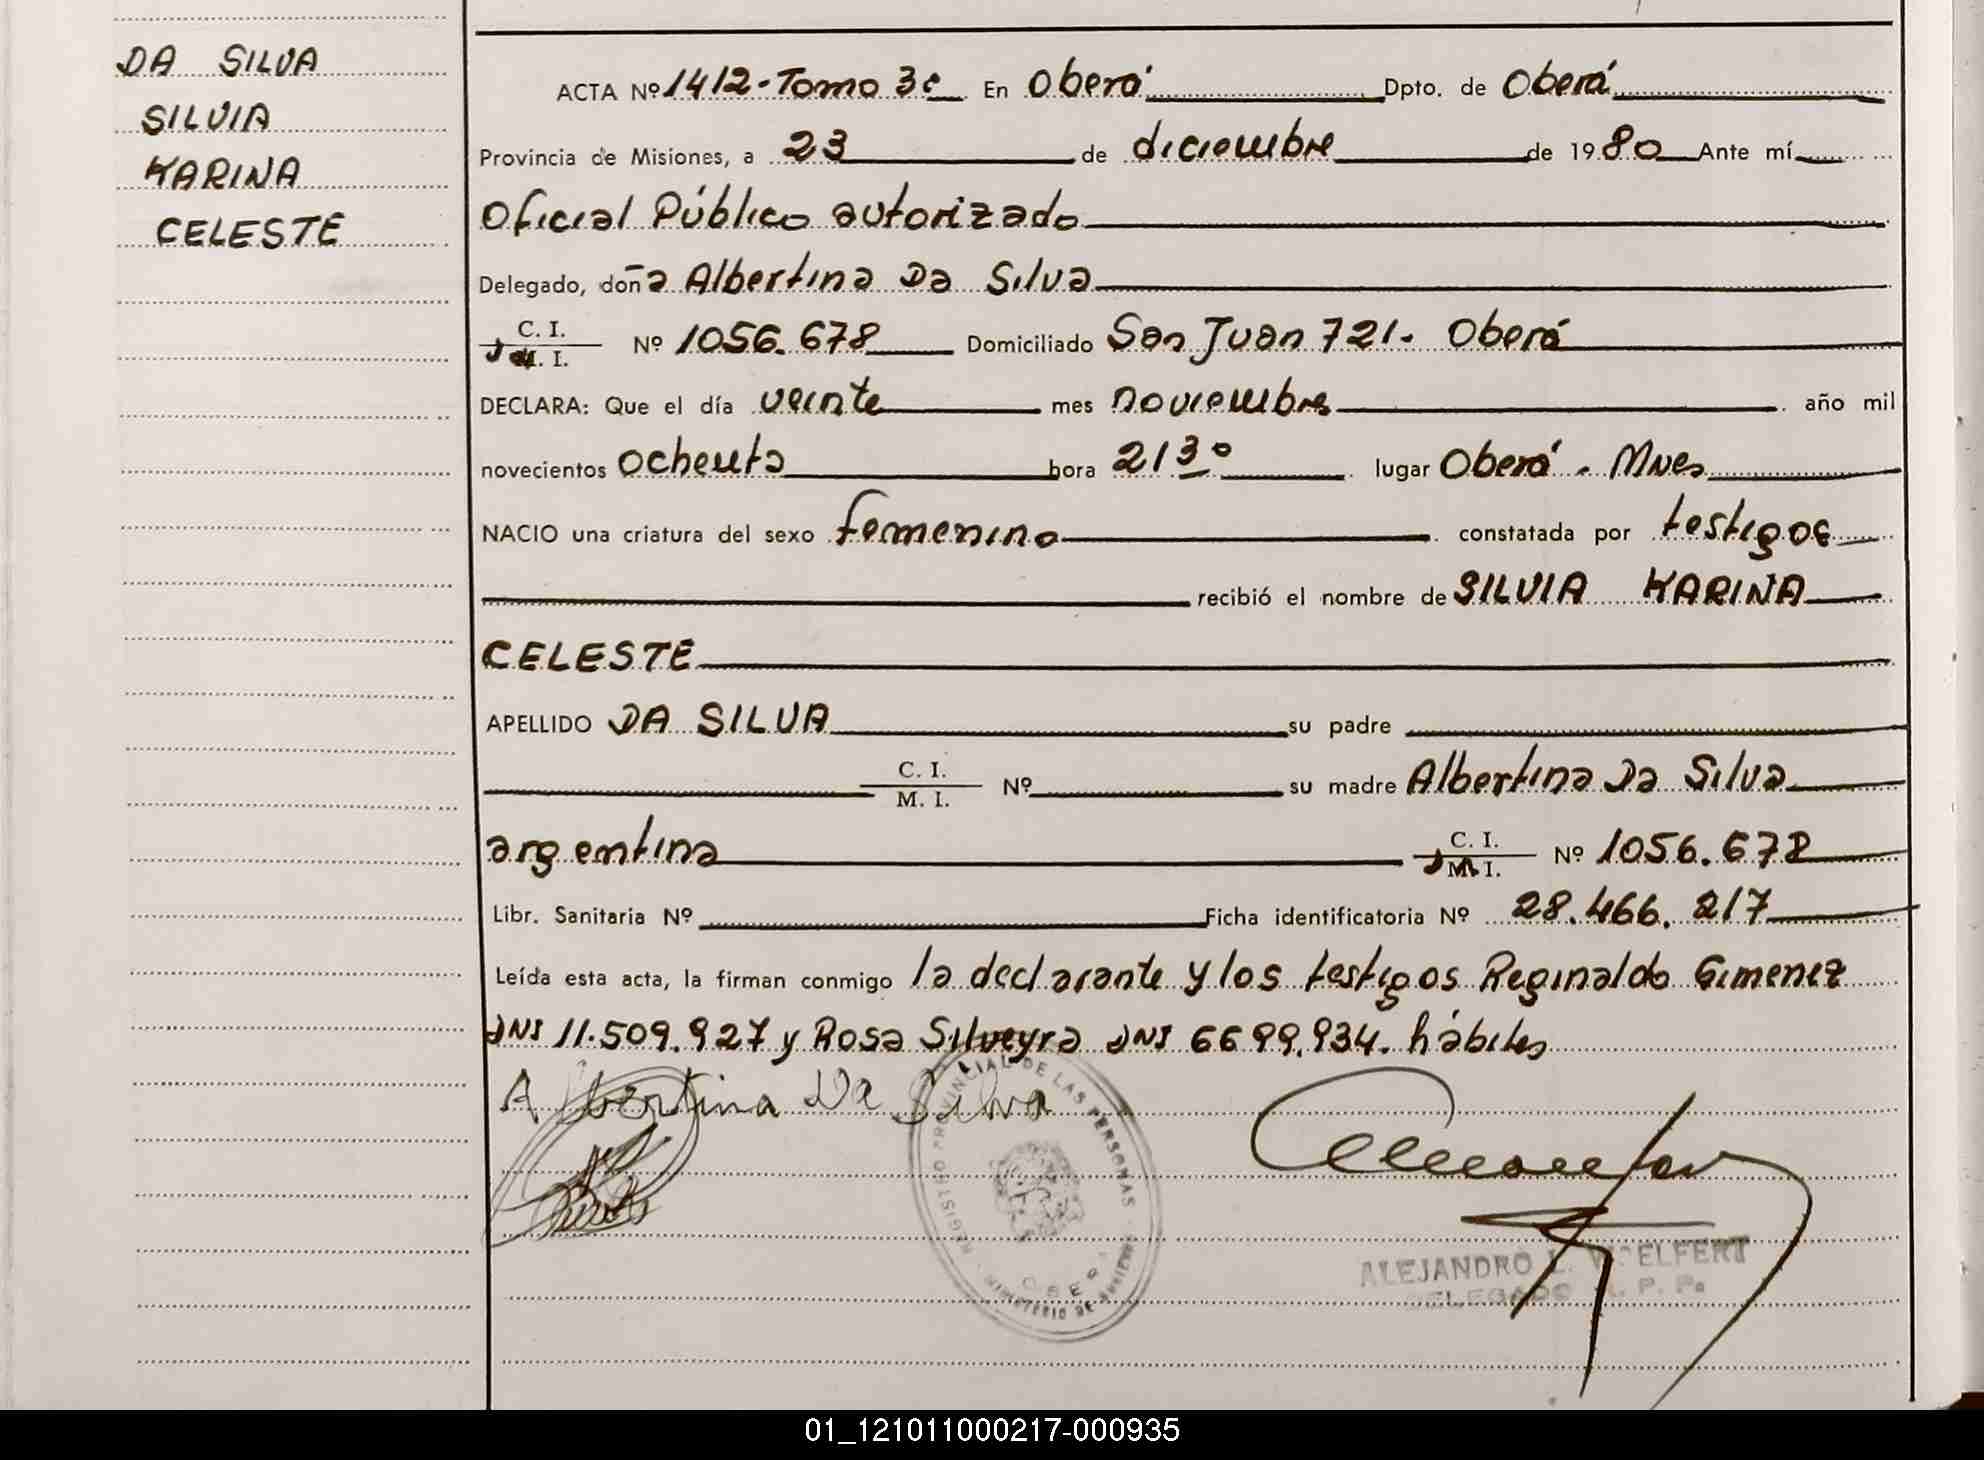 DA SILVA
SILVIA
KARINA
CELESTE
ACTA Nº 1412-Tomo 3º En Oberá Dpto. de Oberá
Provincia de Misiones, a 23 de diciembre de 1980 Ante mí
Oficial Público autorizado
Delegado, doña Albertina Da Silva
C. I.
M. I. Nº 1056.678 Domiciliado San Juan 721. Oberá
DECLARA: Que el día veinte mes noviembre año mil
novecientos ochenta hora 21 30 lugar Oberá. Mnes
NACIO una criatura del sexo femenino constatada por testigos
recibió el nombre de SILVIA KARINA
CELESTE
APELLIDO DA SILVA su padre
C. I.
M. I. Nº su madre Albertina Da Silva
argentina C. I.
M. I. Nº 1056.678
Libr. Sanitaria Nº Ficha identificatoria Nº 28.466.217
Leída esta acta, la firman conmigo la declarante y los testigos Reginaldo Gimenez
DNI 11.509.927 y Rosa Silveyra DNI 6699.934. hábiles
Albertina Da Silva
REGISTRO PROVINCIAL DE LAS PERSONAS
OBERA
MINISTERIO DE
ALEJANDRO L. WOELFERT
DELEGADO R. P. P.
01_121011000217-000935